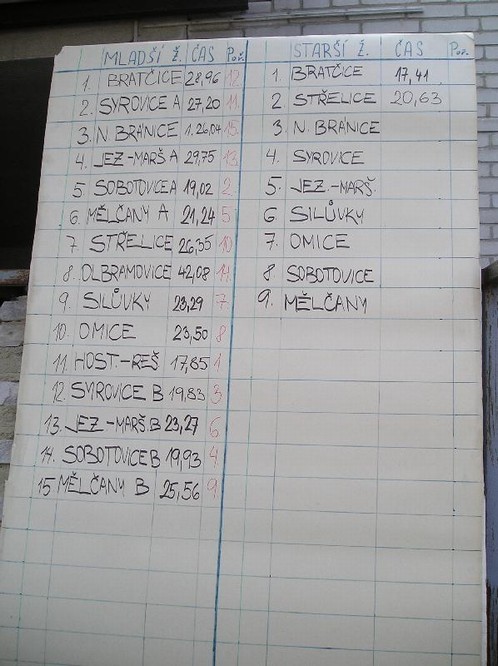 MLADŠÍ Ž. ČAS Poř. STARŠÍ Ž. ČAS Poř.
1. BRATČICE 28,96 12. 1. BRATČICE 17,41
2. SYROVICE A 27,20 11. 2 STŘELICE 20,63
3. N. BRANICE 1.26,04 15. 3. N. BRANICE
4. JEZ-MARŠ A 29,75 13. 4. SYROVICE
5 SOBOTOVICE A 19,02 2. 5. JEZ.-MARŠ.
6. MĚLČANY A 21,24 5 6. SILŮVKY
7. STŘELICE 26,35 10 7. OMICE
8. OLBRAMOVICE 42,08 14. 8. SOBOTOVICE
9. SILŮVKY 23,29 7 9. MĚLČANY
10. OMICE 23,50 8
11. HOST.-REŠ 17,85 1
12. SYROVICE B 19,83 3
13. JEZ-MARŠ B 23,27 6
14. SOBOTOVICE B 19,93 4
15 MĚLČANY B 25,56 9